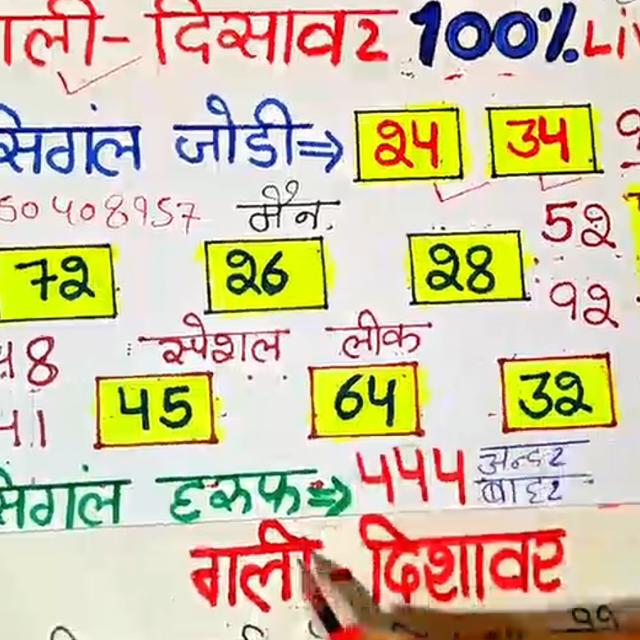 गली- दिसावर 100% Li
सिगंल जोडी⇒ 24 34
50408957 मैन. 52
72 26 28 92
48 स्पेशल लीक
41 45 64 32
सिगंल हरुफ⇒ 444 अन्दर बाहर
गली - दिशावर